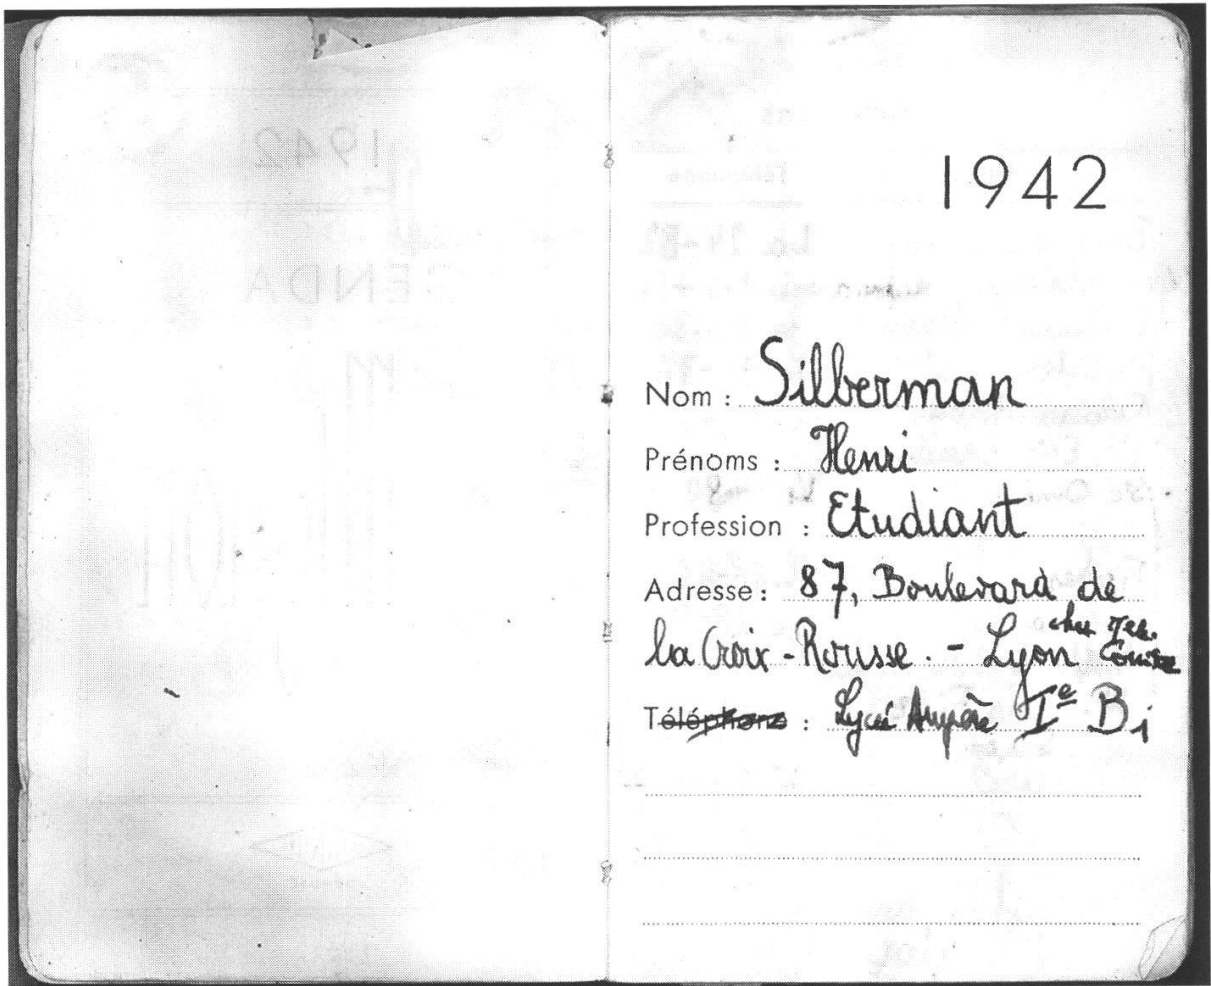 1942
Nom : Silberman
Prénoms : Henri
Profession : Etudiant
Adresse : 87, Boulevard de
la Croix-Rousse. - Lyon chez
Téléphone : Lycée Ampère Iᵉ B